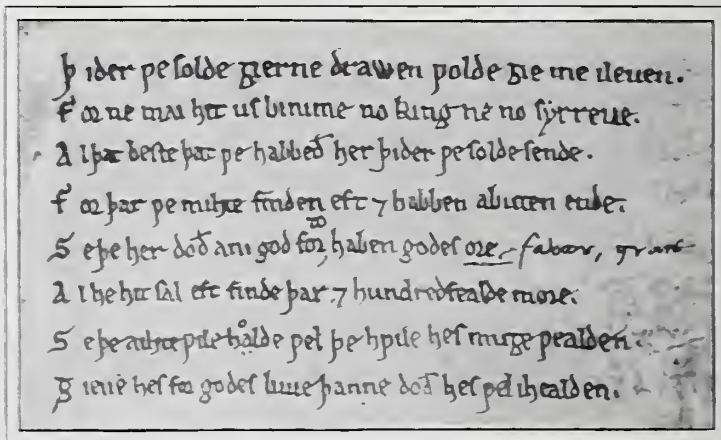 Þ ider ƿe ſolde gierne drawen ƿolde gie me ileuen.
F or ne mai hit uſ binime no king ne no ſẏrreue.
A l þat beſte þat ƿe habbeð her þider ƿe ſolde ſende.
F or þar ƿe mihte finden eft ⁊ habben abuten ende.
S eþe her doð ani god for to haben godeſ ore favour,
A l he hit ſal eft finde þar. ⁊ hundredfealde more.
S eþe aihte ƿile holde ƿel þe hƿile heſ muge ƿealden.
G ieue heſ for godeſ luue þanne doð heſ ƿel ihealden.